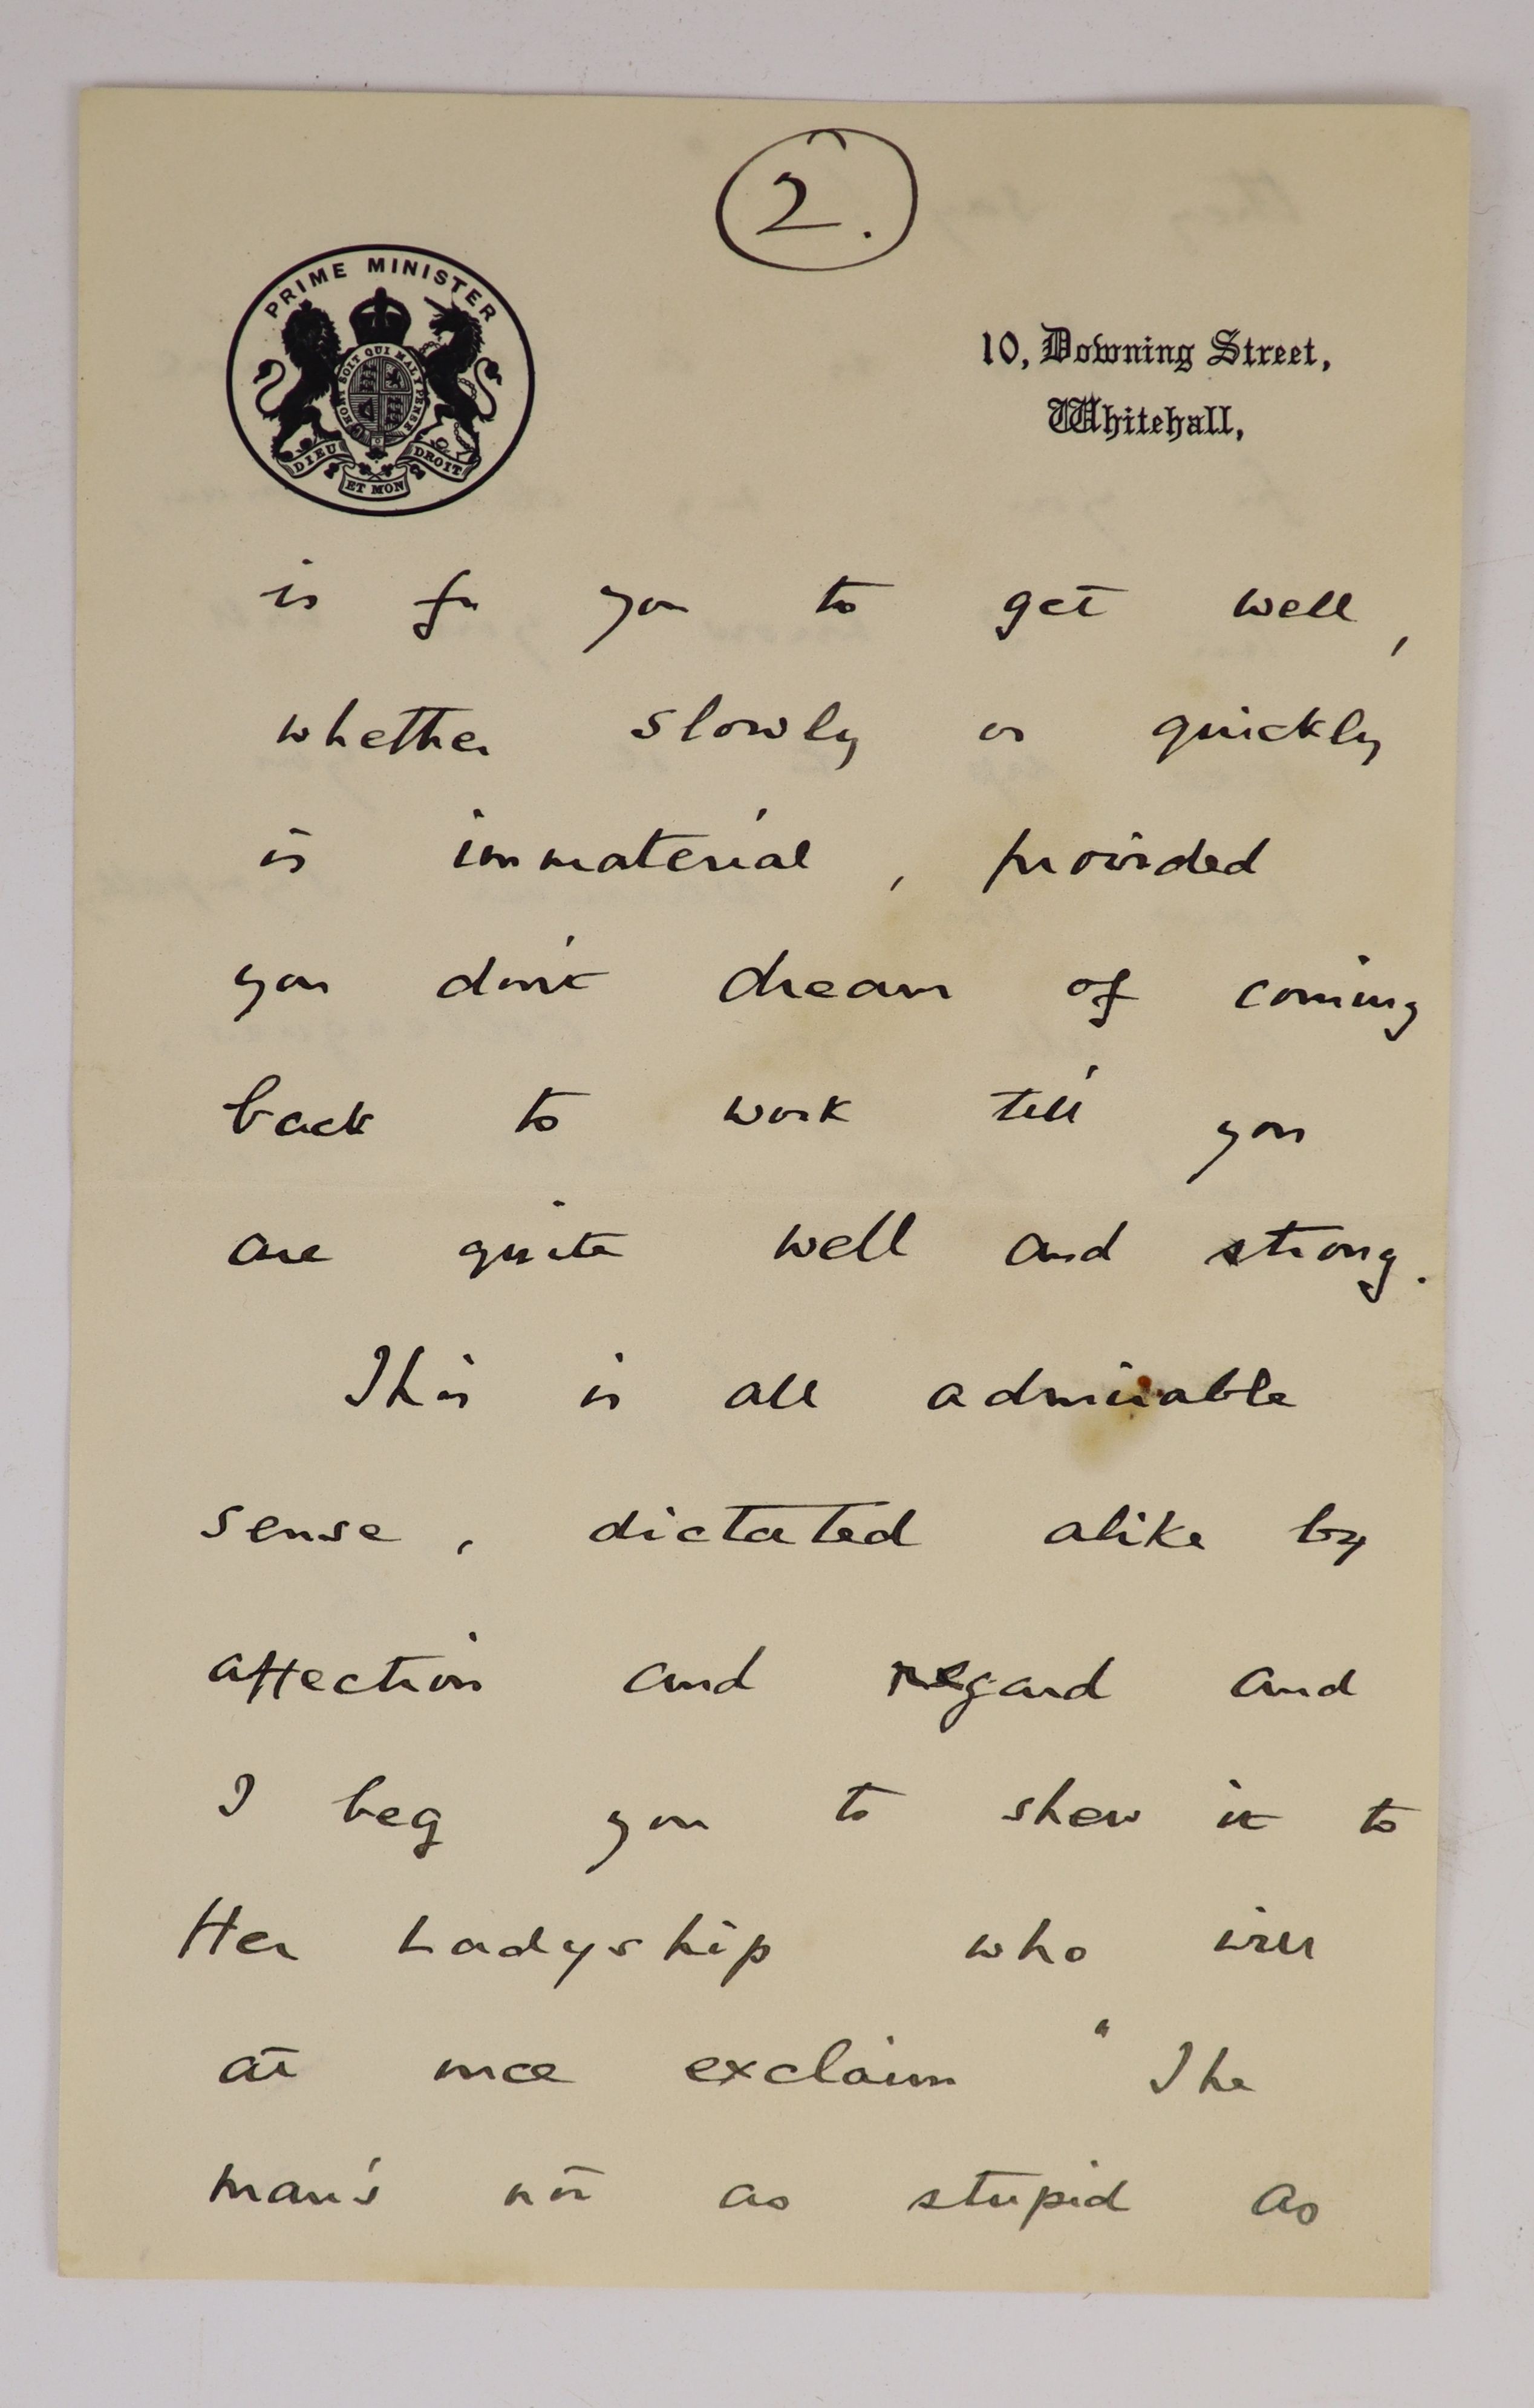 2.
PRIME MINISTER
HONI SOIT QUI MAL Y PENSE
DIEU ET MON DROIT
10, Downing Street,
Whitehall,
is for you to get well,
whether slowly or quickly
is immaterial, provided
you don't dream of coming
back to work till you
are quite well and strong.
This is all admirable
sense, dictated alike by
affection and regard and
I beg you to shew it to
Her Ladyship who will
at once exclaim "The
man's not as stupid as